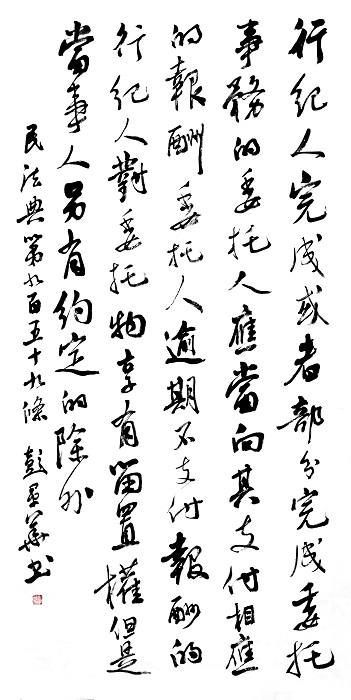 行紀人完成或者部分完成委托
事務的委托人應當向其支付相應
的報酬委托人逾期不支付報酬的
行紀人對委托物享有留置權但是
當事人另有約定的除外
民法典第九百五十九條 彭華书